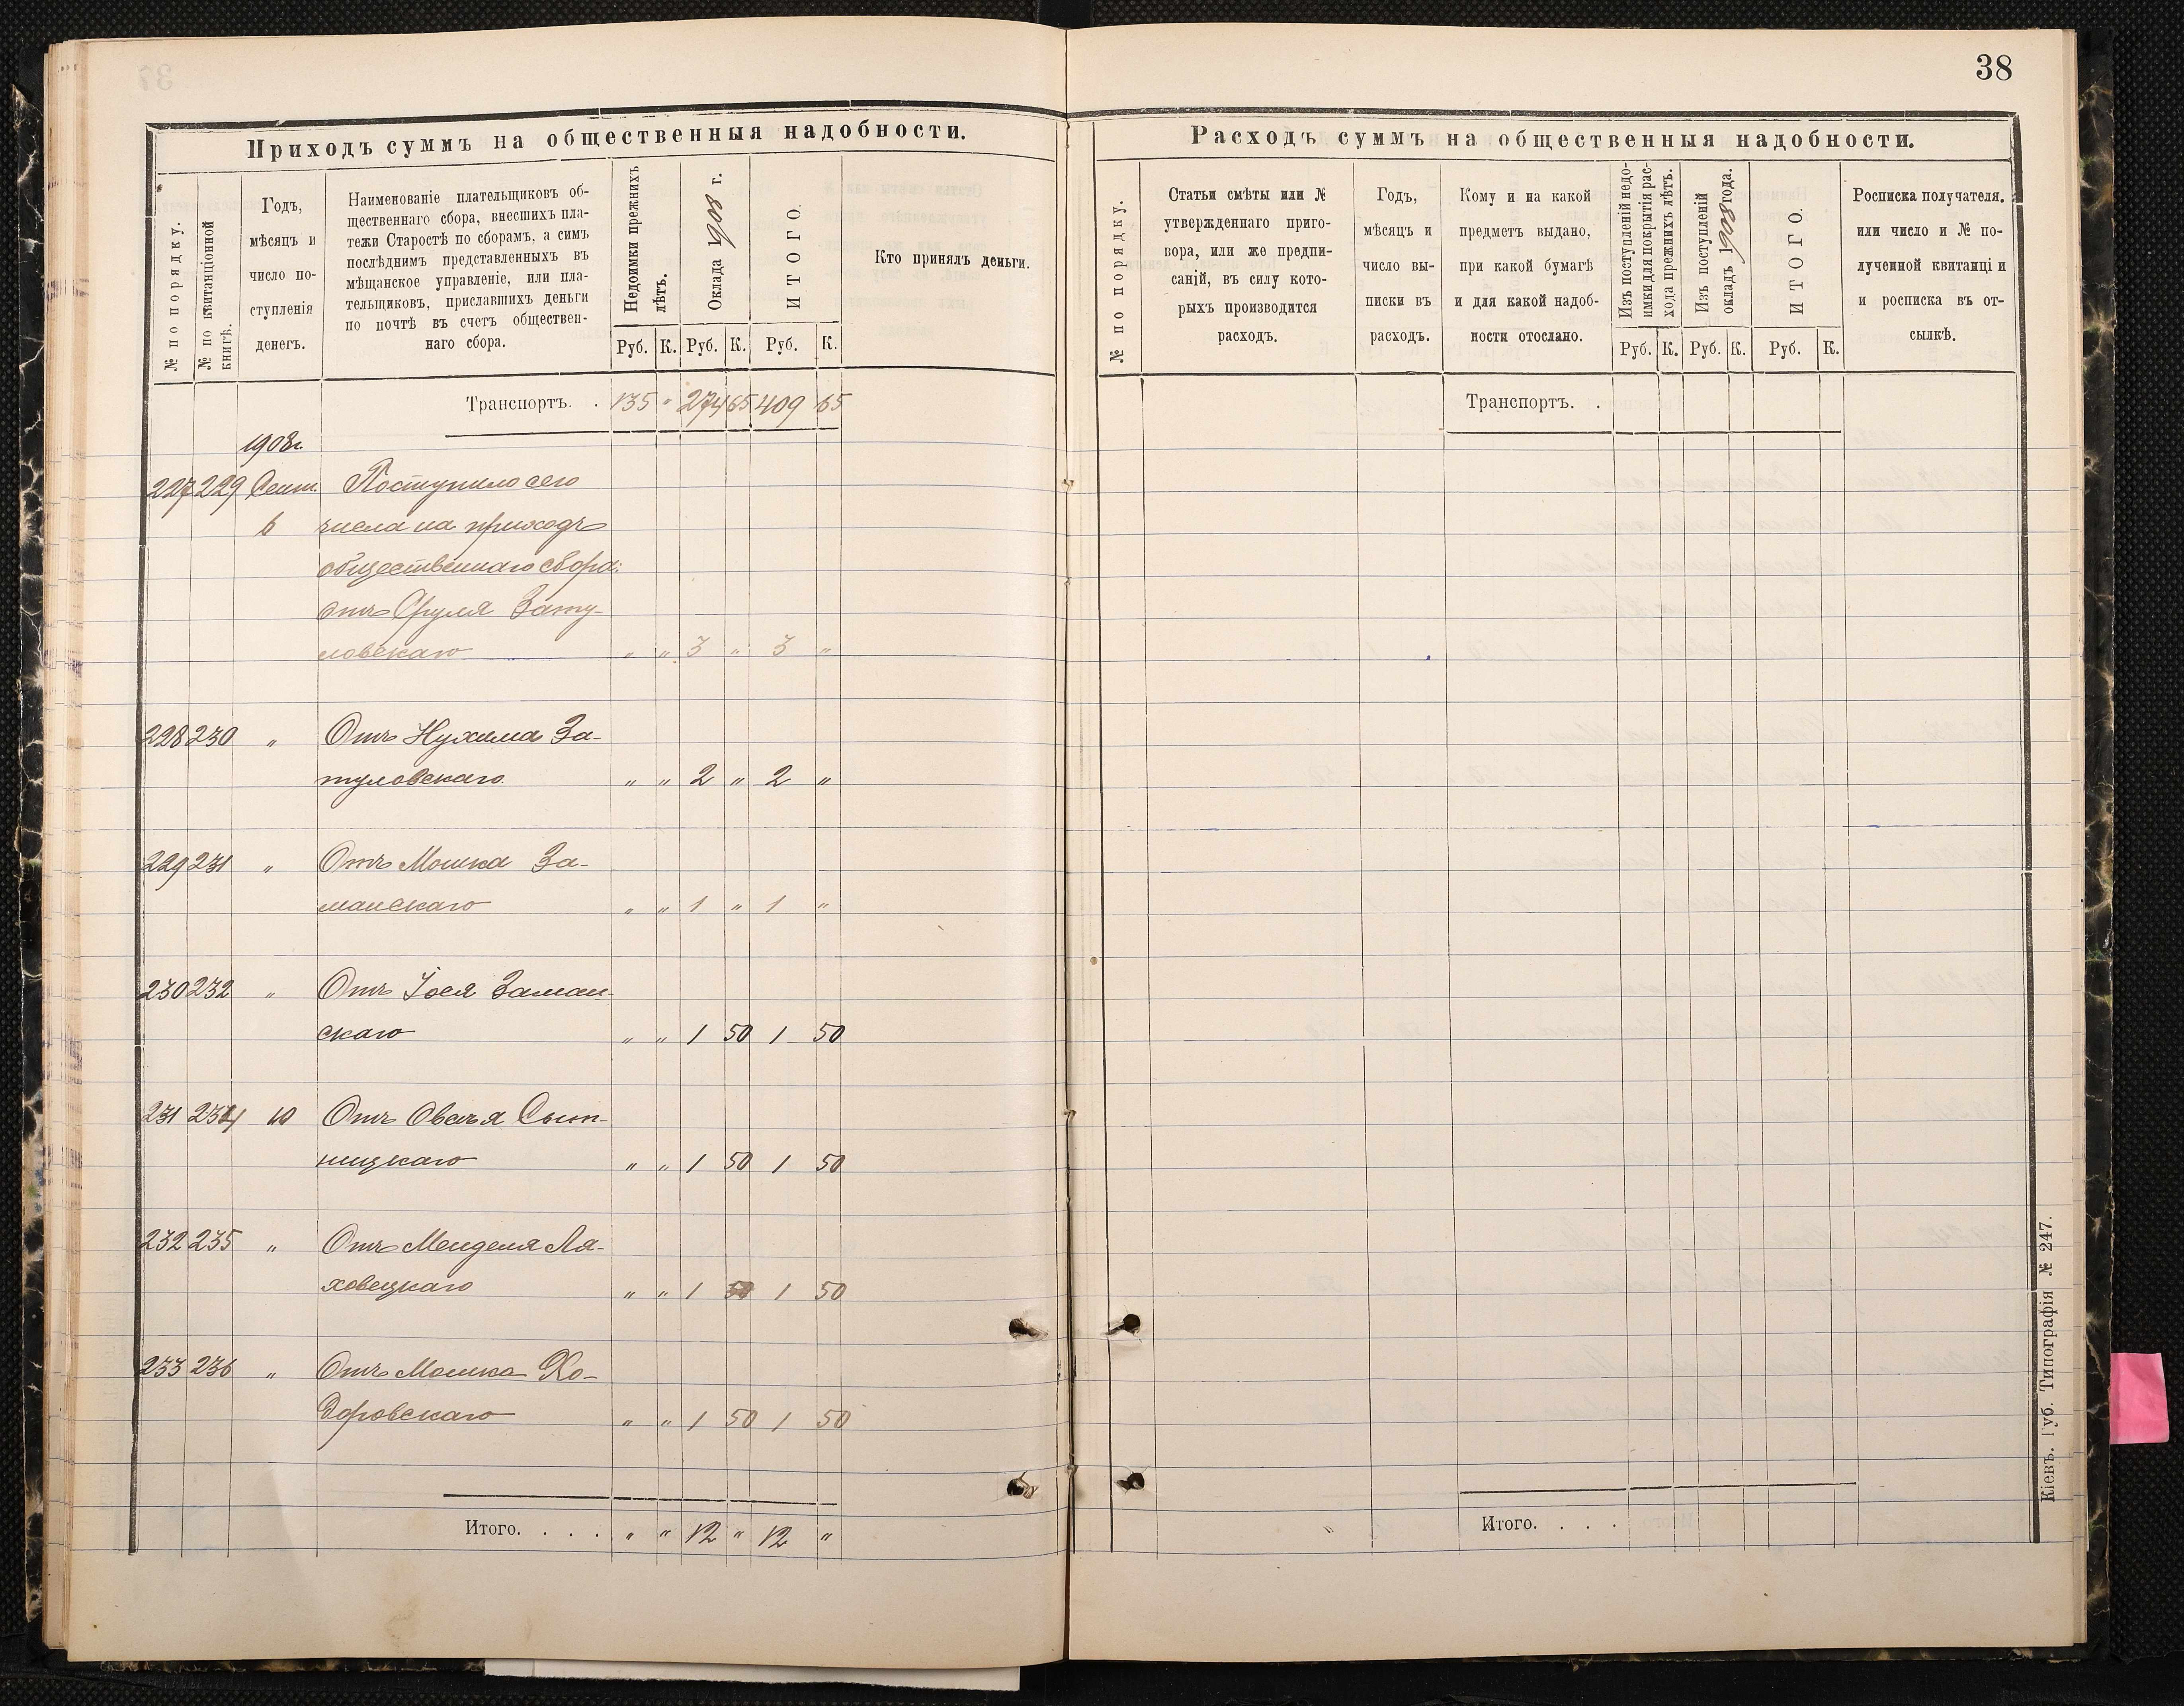 38
Приходъ суммъ на общественныя надобности.
№ по порядку.
№ по квитанціонной книгѣ.
Годъ,
мѣсяцъ и
число по-
ступленія
денегъ.
Наименованіе плательщиковъ об-
щественнаго сбора, внесшихъ пла-
тежи Старостѣ по сборамъ, а симъ
послѣднимъ представленныхъ въ
мѣщанское управленіе, или пла-
тельщиковъ, приславшихъ деньги
по почтѣ въ счетъ обществен-
наго сбора.
Недоимки прежнихъ
лѣтъ.
Оклада 1908 г.
ИТОГО.
Кто принялъ деньги.
Руб. К. Руб. К. Руб. К.
Транспортъ. . 135 " 274 65 409 65
1908г.
227 229 Сент. Поступило сего
6 числа на приходъ
общественнаго сбора:
отъ Сруля Зату-
ловскаго " " 3 " 3 "
228 230 " Отъ Нухима За-
туловскаго " " 2 " 2 "
229 231 " Отъ Мошка За-
манскаго " " 1 " 1 "
230 232 " Отъ Іося Заман-
скаго " " 1 50 1 50
231 234 10 Отъ Овсѣя Сыт-
ницкаго " " 1 50 1 50
232 235 " Отъ Менделя Ля-
ховецкаго " " 1 50 1 50
233 236 " Отъ Мошка Хо-
доровскаго " " 1 50 1 50
Итого. . . . " " 12 " 12 "
Расходъ суммъ на общественныя надобности.
№ по порядку.
Статьи смѣты или №
утвержденнаго приго-
вора, или же предпи-
саній, въ силу кото-
рыхъ производится
расходъ.
Годъ,
мѣсяцъ и
число вы-
писки въ
расходъ.
Кому и на какой
предметъ выдано,
при какой бумагѣ
и для какой надоб-
ности отослано.
Изъ поступленій недо-
имки для покрытія рас-
хода прежнихъ лѣтъ.
Изъ поступленій
окладъ 1908 года.
ИТОГО.
Росписка получателя,
или число и № по-
лученной квитанціи
и росписка въ от-
сылкѣ.
Руб. К. Руб. К. Руб. К.
Транспортъ. .
Итого. . . .
Кіевъ. Губ. Типографія № 247.